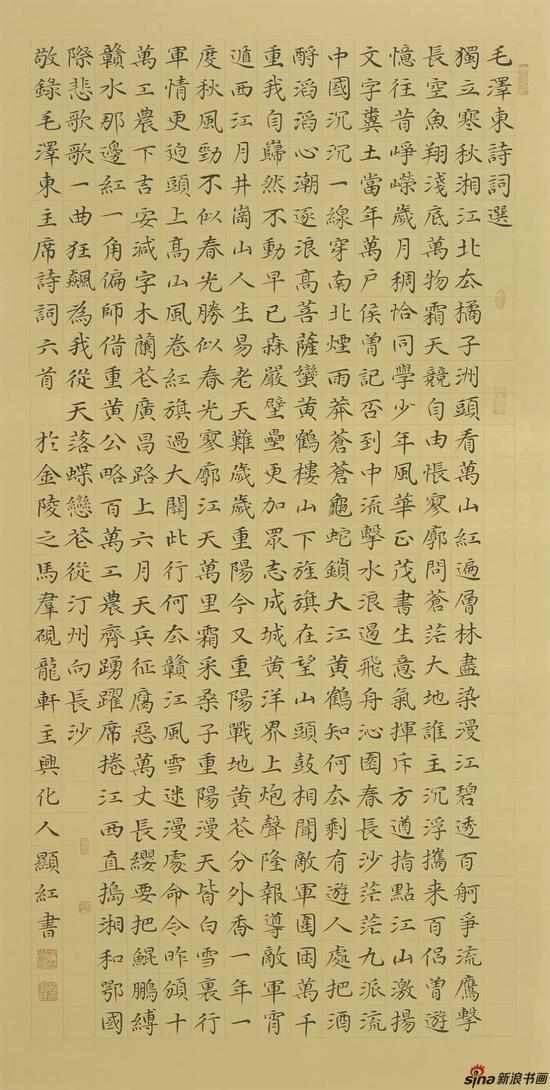 毛澤東詩詞選
獨立寒秋湘江北去橘子洲頭看萬山紅遍層林盡染漫江碧透百舸爭流鷹擊
長空魚翔淺底萬物霜天競自由悵寥廓問蒼茫大地誰主沉浮攜来百侶曾遊
憶往昔崢嶸歲月稠恰同學少年風華正茂書生意氣揮斥方遒指點江山激揚
文字糞土當年萬戶侯曾記否到中流擊水浪遏飛舟沁園春長沙茫茫九派流
中國沉沉一線穿南北煙雨莽蒼蒼龜蛇鎖大江黃鶴知何去剩有遊人處把酒
酹滔滔心潮逐浪高菩薩蠻黃鶴樓山下旌旗在望山頭鼓相聞敵軍圍困萬千
重我自歸然不動早已森嚴壁壘更加眾志成城黃洋界上炮聲隆報導敵軍宵
遁西江月井崗山人生易老天難歲歲重陽今又重陽戰地黃花分外香一年一
度秋風勁不似春光勝似春光寥廓江天萬里霜采桑子重陽漫天皆白雪裏行
軍情更迫頭上高山風卷紅旗過大關此行何去贛江風雪迷漫處命令昨頒十
萬工農下吉安減字木蘭花廣昌路上六月天兵征腐惡萬丈長纓要把鯤鵬縛
贛水那邊紅一角偏師借重黃公略百萬工農齊踴躍席捲江西直搗湘和鄂國
際悲歌歌一曲狂飆為我從天落蝶戀花從汀州向長沙
敬錄毛澤東主席詩詞六首 於金陵之馬羣硯龍軒主興化人顯紅書
sina新浪书画